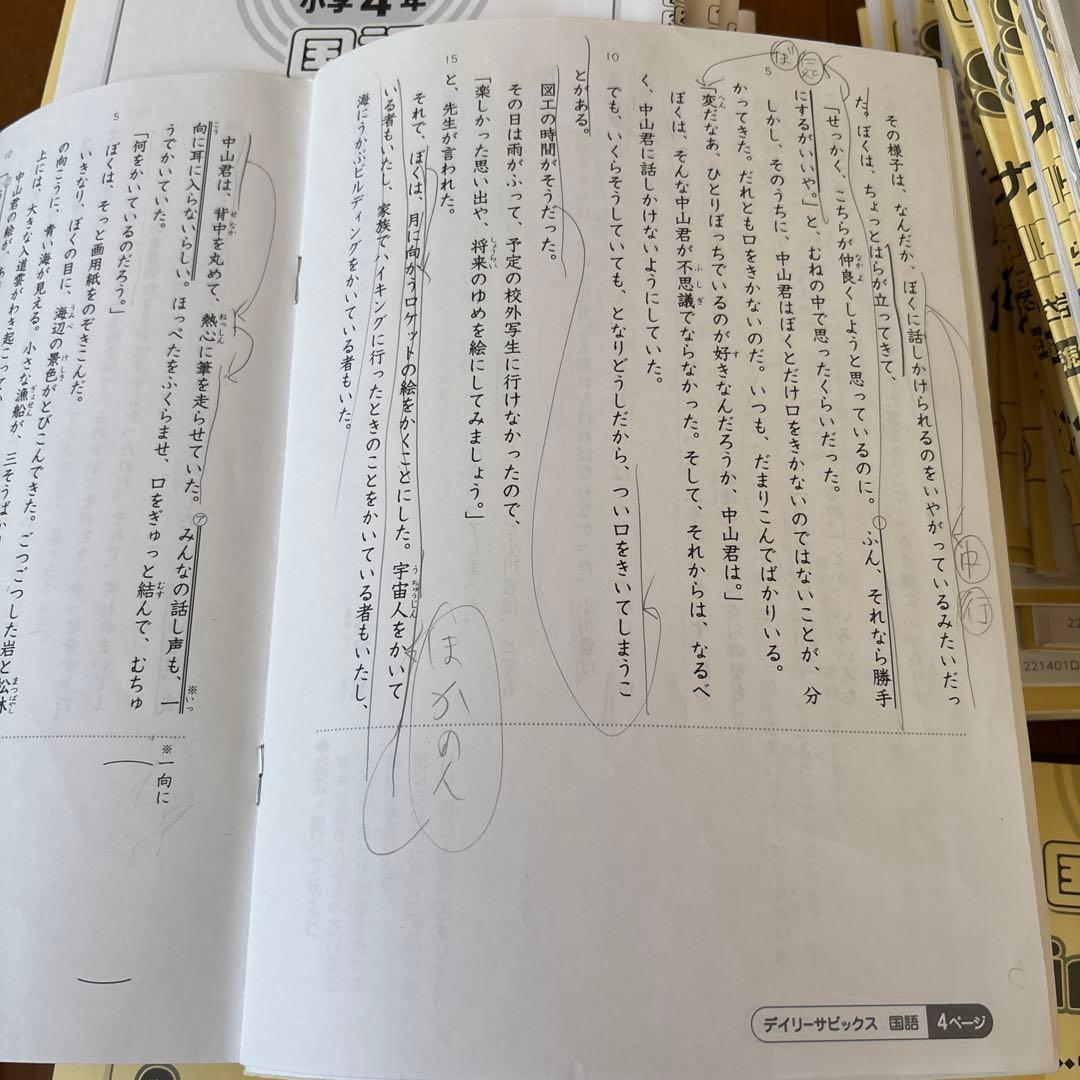 小学4年
その様子は、なんだか、ぼくに話しかけられるのをいやがっているみたいだっ
た。ぼくは、ちょっとはらが立ってきて、
「せっかく、こちらが仲良くしようと思っているのに。ふん、それなら勝手
にするがいいや。」と、むねの中で思ったくらいだった。
しかし、そのうちに、中山君はぼくとだけ口をきかないのではないことが、分
かってきた。だれとも口をきかないのだ。いつも、だまりこんでばかりいる。
「変だなあ、ひとりぼっちでいるのが好きなんだろうか、中山君は。」
ぼくは、そんな中山君が不思議でならなかった。そして、それからは、なるべ
く、中山君に話しかけないようにしていた。
でも、いくらそうしていても、となりどうしだから、つい口をきいてしまうこ
とがある。
図工の時間がそうだった。
その日は雨がふって、予定の校外写生に行けなかったので、
「楽しかった思い出や、将来のゆめを絵にしてみましょう。」
と、先生が言われた。
それで、ぼくは、月に向かうロケットの絵をかくことにした。宇宙人をかいて
いる者もいたし、家族でハイキングに行ったときのことをかいている者もいたし、
海にうかぶビルディングをかいている者もいた。
5
10
15
ぼ
中
行
ほかのん
デイリーサピックス 国語 4ページ
中山君は、背中を丸めて、熱心に筆を走らせていた。㋐みんなの話し声も、一
向に耳に入らないらしい。ほっぺたをふくらませ、口をぎゅっと結んで、むちゅ
うでかいていた。
「何をかいているのだろう。」
ぼくは、そっと画用紙をのぞきこんだ。
いきなり、ぼくの目に、海辺の景色がとびこんできた。ごつごつした岩と松林
の向こうに、青い海が見える。小さな漁船が、三そうばか
上には、大きな入道雲がわき起こってい
中山君の絵が、
※一向に
5
10
221401D
国